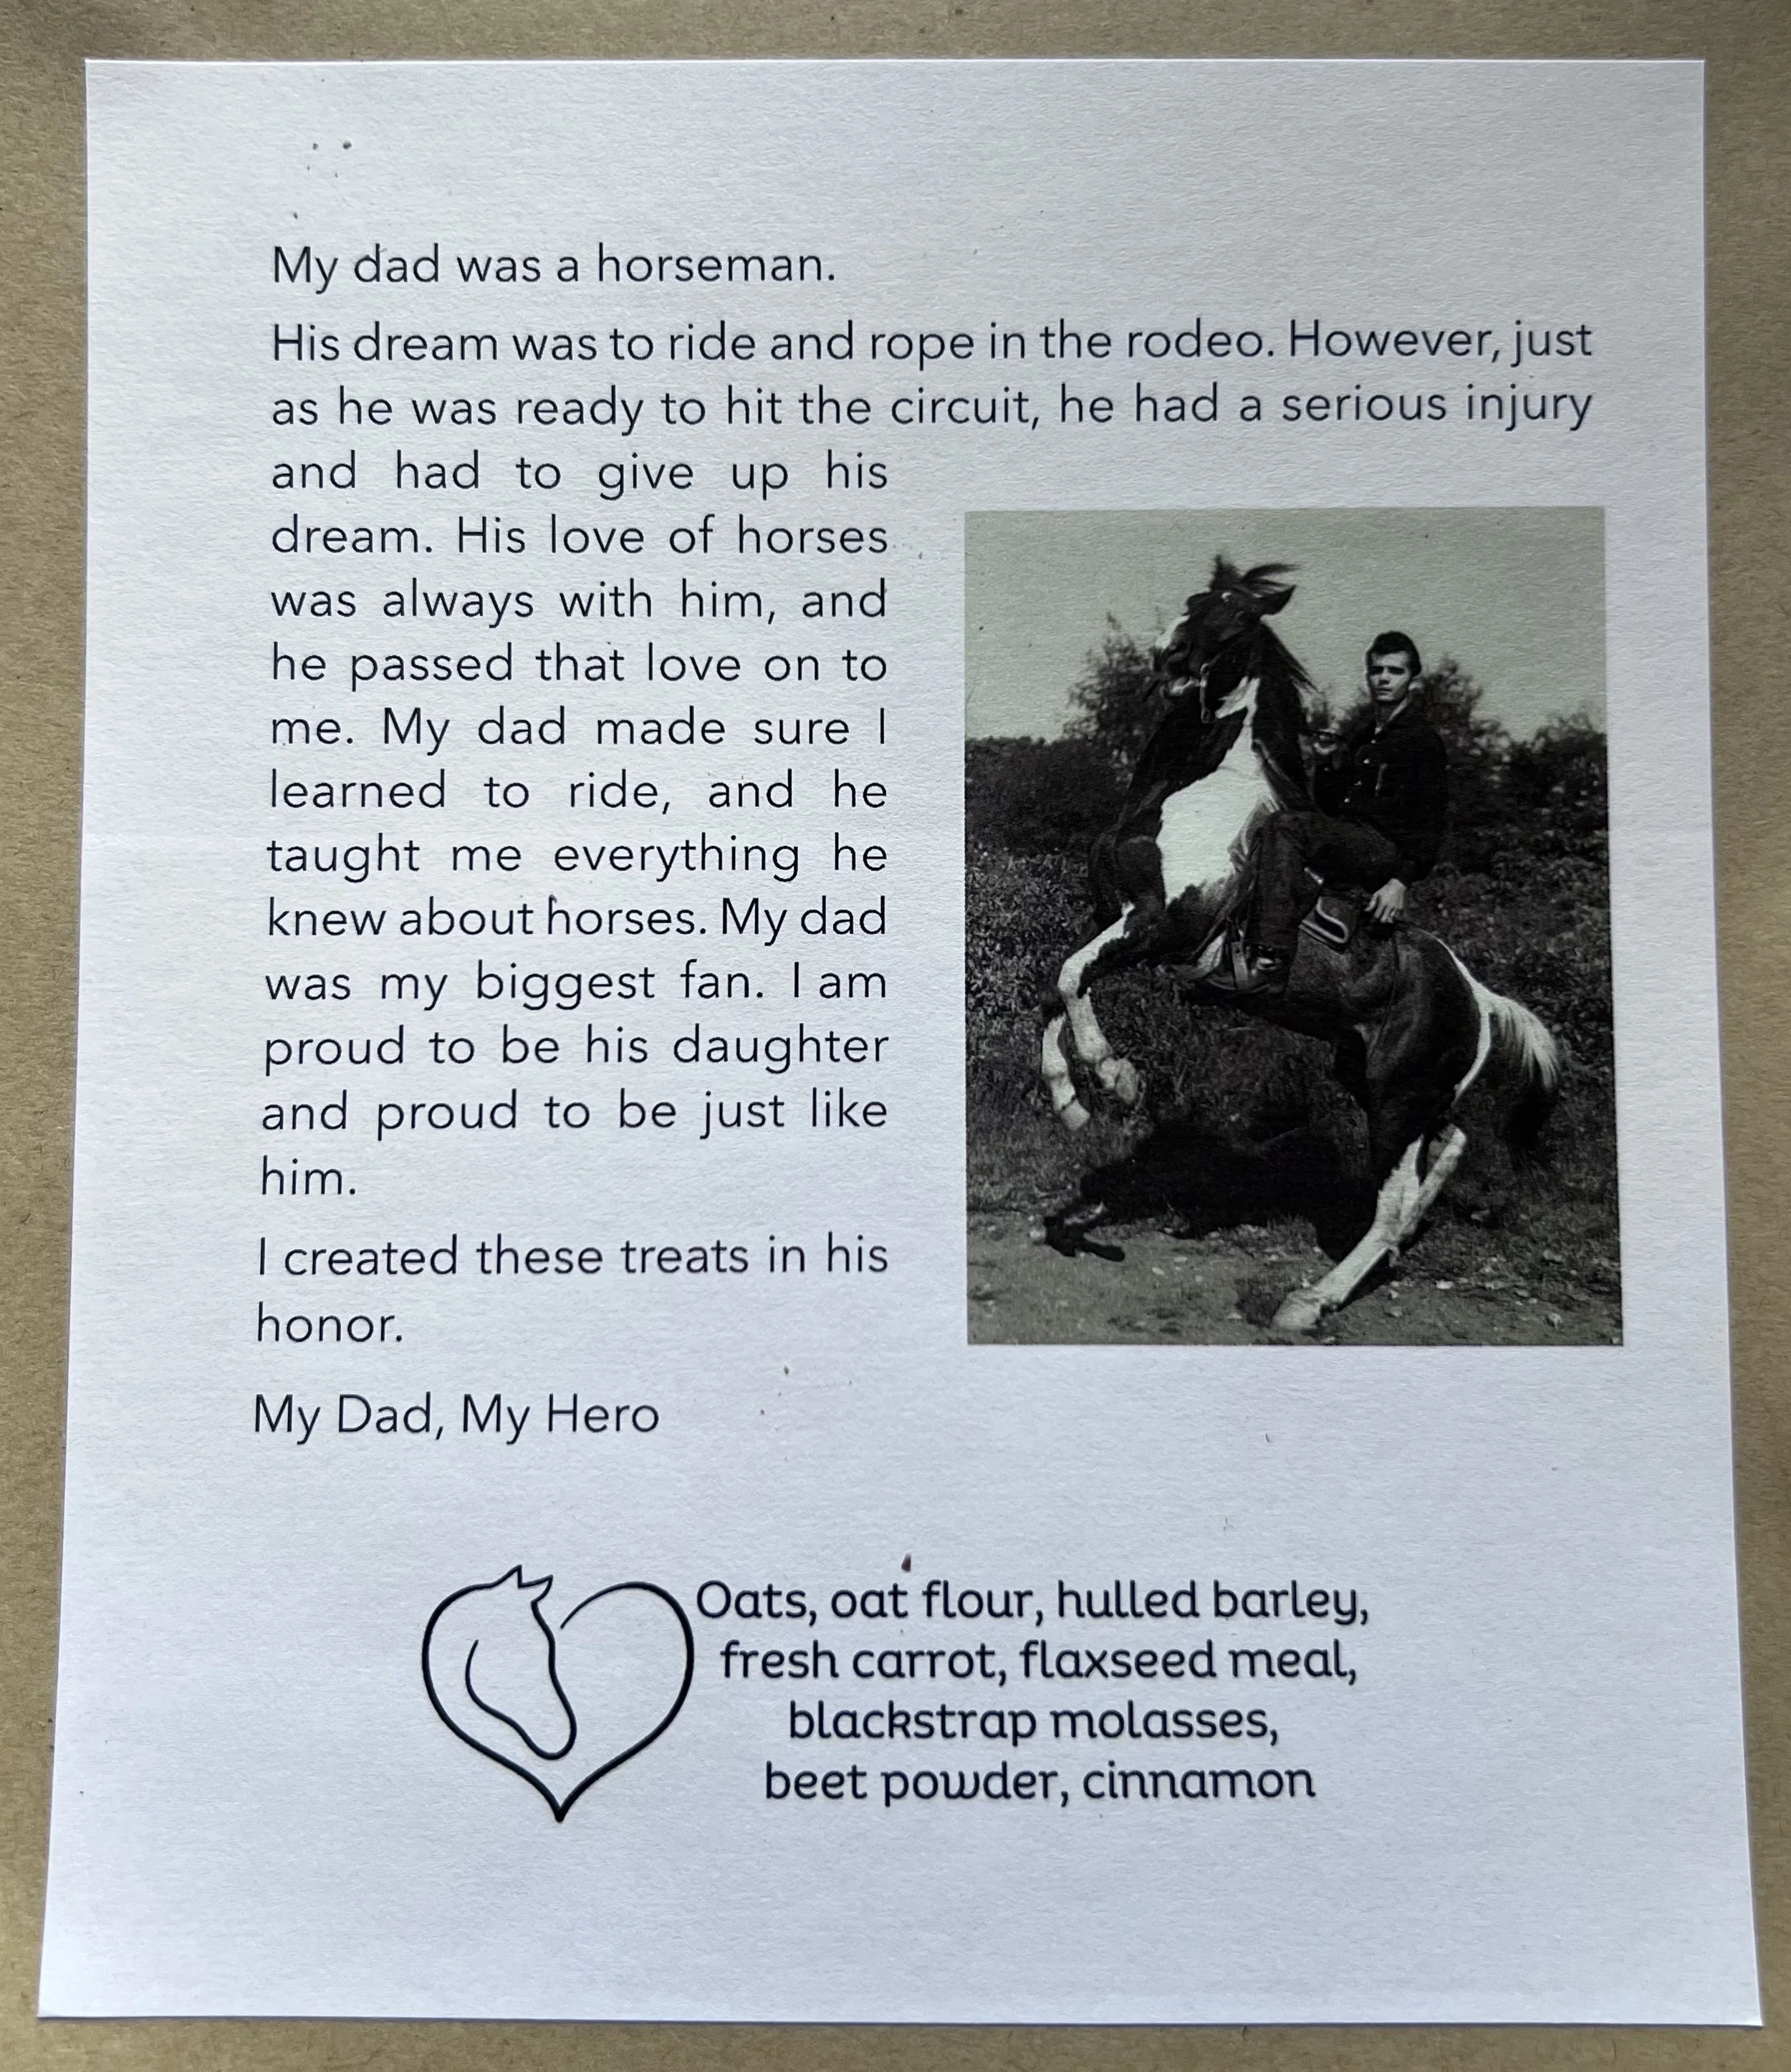 My dad was a horseman.
His dream was to ride and rope in the rodeo. However, just
as he was ready to hit the circuit, he had a serious injury
and had to give up his
dream. His love of horses
was always with him, and
he passed that love on to
me. My dad made sure I
learned to ride, and he
taught me everything he
knew about horses. My dad
was my biggest fan. I am
proud to be his daughter
and proud to be just like
him.
I created these treats in his
honor.
My Dad, My Hero
Oats, oat flour, hulled barley,
fresh carrot, flaxseed meal,
blackstrap molasses,
beet powder, cinnamon